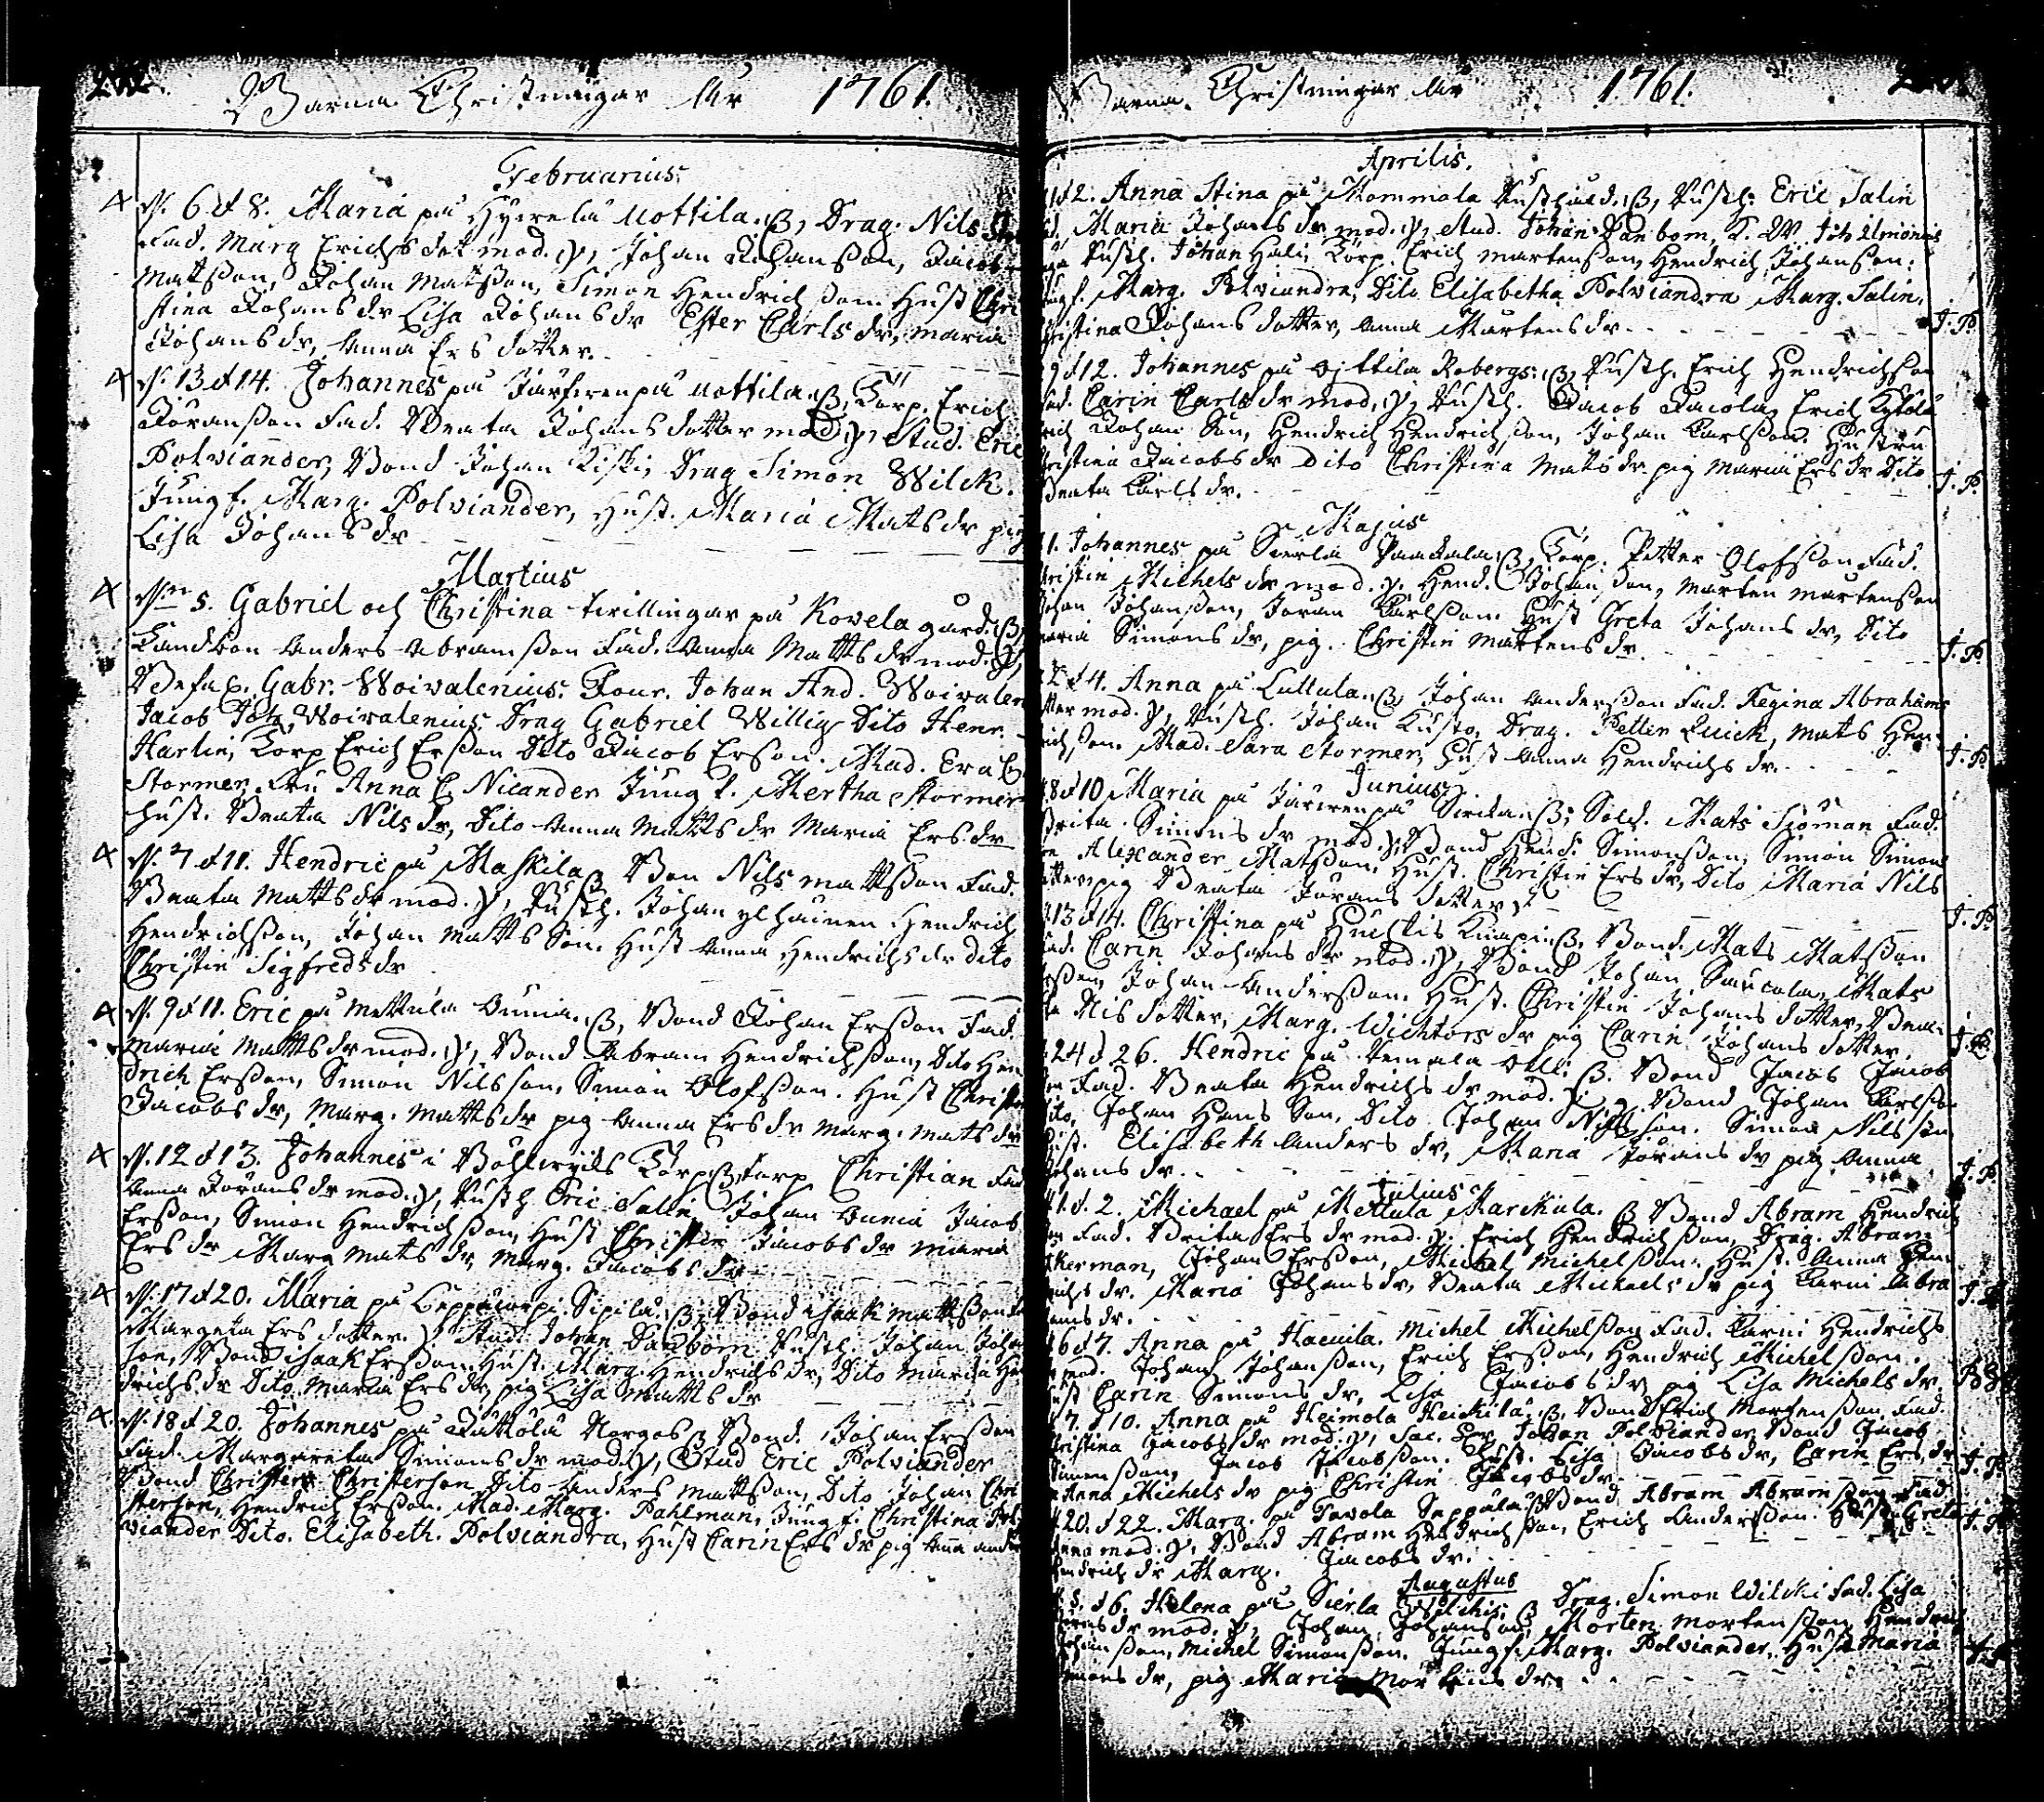 Barna Christningar År 1761.
Februarius
N. 6 d 8. Maria på Hyrrelä Uottila. ß, Drag. Nils
Fad. Marg Erichs dot mod. y, Johan Johansson, Jacob
Mattsson, Johan Matsson, Simon Hendrichsson. Hust Chri
stina Johans dr Lisa Johans dr Ester Carls dr, Maria
Johans dr, Anna Ers dotter.
N. 13 d 14. Johannes på Uottila. ß, Torp. Erich
Joransson Fad. Beata Johans dotter mod y, Stud. Eric
Polviander, Bond Johan Kiski, Drag Simon Wilck.
Jungf. Marg. Polviander, Hust. Maria Mats dr pig
Lisa Johans dr
Martius
N. 5. Gabriel och Christina tvillingar på Kovela gård. ß,
Landbon Anders Abramsson Fad. Anna Matts dr mod. y,
Befa Gabr. Woivalenius. Four. Johan And. Woivalen
Jacob Joh. Woivalenius. Drag Gabriel Willig Dito Henr.
Harlin, Torp Erich Ersson Dito Jacob Erson. Mad. Eva
Stormer Fru Anna C Nicander Jungf. Mertha Stormer
Hust. Beata Nils dr, Dito Anna Matts dr Maria Ers dr
N. 7 d 11. Hendric på Maskila ß Bon Nils Mattsson Fad.
Beata Matts dr mod. y, Rusth. Johan Hendrich
Hendrichsson, Johan Matts Son. Hust Anna Hendrichs dr Dito
Christin Sigfreds dr
N. 9 d 11. Eric på Mettula Ounia. ß, Bond Johan Ersson Fad.
Maria Matts dr mod. y, Bond Abram Hendrichsson, Dito Hen
drich Ersson, Simon Nilsson, Simon Olofsson. Hust Christi
Jacobs dr, Marg. Matts dr pig Anna Ers dr Marg. Mats dr
N. 12 d 13. Johannes i Torp ß, Torp Christian Fad
Anna Jorans dr mod. y, Rusth Eric Salin Johan Ounia Jacob
Ersson, Simon Hendrichsson, Hust Christin Jacobs dr Maria
Ers dr Marg Mats dr, Marg. Jacobs dr
N. 17 d 20. Maria på Sipilä. ß, Bond Isaak Mattsson
Margeta Ers dotter. y Stud. Johan Danbom Rusth. Johan Johan
son, Bond Isaak Ersson. Hust. Marg Hendrichs dr, Dito Maria Hen
drichs dr Dito Maria Ers dr, pig Lisa Matts dr
N. 18 d 20. Johannes på Jutkola Norgas ß Bond. Johan Ersson
Fad. Margareta Simons dr mod. y, Stud Eric Polviander
Bond Christer Christerson Dito Anders Mattsson, Dito Johan Chri
sterson, Hendrich Ersson. Mad. Marg. Pahlman, Jungf. Christina Pol
viander Dito. Elisabeth. Polviandra, Hust Carin Ers dr pig Ana
Barna. Christningar År 1761.
Aprilis.
d 2. Anna Stina på Mommala Rusthåld. ß, Rusth. Eric Salin
Maria Johans dr mod. y, Stud. Johan Danbom, Joh Ilmonius
Rusth. Johan Hali, Torp. Erich Martensson, Hendrich Johansson.
Jungf. Marg. Polviandra, Dito Elisabetha Polviandra Marg. Salin,
Christina Johans dotter, Anna Martens dr J. P.
9 d 12. Johannes på Robergs. ß, Rusth. Erich Hendrichson
Fad. Carin Carls dr mod, y, Rusth. Jacob Jacola, Erich
rich Johan Son, Hendrich Hendrichsson, Johan Carlsson. Hustru
Christina Jacobs dr Dito Christina Mats dr pig Maria Ers dr Dito
Beata Carls dr. J. P.
Majus
1. Johannes på Sierla ß, Torp. Petter Olofsson Fad.
Christin Michels dr mod. y. Hend. Johansson, Marten Martensson
Johan Johansson, Joran Carlsson. Hust Greta Johans dr, Dito
Maria Simons dr, pig. Christin Martens dr J. P.
d 4. Anna på Luttula. ß Johan Andersson Fad. Regina Abrahams
dotter mod. y, Rusth. Johan Kusto, Drag. Petter Quick, Mats Hen
richsson. Mad. Sara Stormer, Hust Anna Hendrichs dr. J. P.
Junius.
8 d 10 Maria på ß, Sold. Mats Sjoman Fad.
Brita Simons dr mod. y, Bond Hend. Simonsson, Simon Simon
Alexander Matsson, Hust. Christin Ers dr, Dito Maria Nils
dotter, pig Beata Jorans dotter J. P.
13 d 14. Christina på Huchtis Knapin ß. Bond. Mats Matsson
Fad. Carin Johans dr mod. y, Bond Johan Saucola, Mats
Ersson, Johan Andersson. Hust. Christin Johans dotter, Bea
ta Nis dotter, Marg. Wichtors dr pig Carin Johans dotter. J. P.
24 d 26. Hendric på Uemala Olli: ß. Bond Jacob Jacob
son Fad. Beata Hendrichs dr mod. y. Bond Johan Carlsson
Dito, Johan Hans Son, Dito Johan Nilsson. Simon Nilsson
Hust. Elisabeth Anders dr, Maria Jorans dr pig Anna
Johans dr. J. P.
Julius
1 d. 2. Michael på Mettula Marckula. ß Bond Abram Hendrich
son Fad. Brita Ers dr mod. y. Erich Hendrichsson, Drag. Abram
Åkerman, Johan Ersson, Michel Michelsson. Hust. Anna Hen
richs dr. Maria Johans dr, Beata Michaels dr pig Karin Abra
hams dr.
6 d 7. Anna på Hacuila. Michel Michelsson Fad. Karin Hendrichs
dr mod. Johan Johansson, Erich Ersson, Hendrich Michelsson.
Hust Carin Simons dr, Lisa Jacobs dr pig Lisa Michels dr
7 d 10. Anna på Heimola Heickilä. ß. Bond Erich Mortensson Fad.
Christina Jacobs dr mod. y, Sac. Johan Polviander Bond Jacob
Simonsson, Jacob Jacobsson. Hust. Lisa Jacobs dr, Carin Ers dr
Anna Michels dr pig Christin Jacobs dr J. P.
20. d 22. Marg. på Tevola Seppälä ß Bond Abram Abramsson Fad.
Anna mod. y. Bond Abram Hendrichsson, Erich Andersson. Hust. Greta
Hendrich dr Marg. Jacobs dr.
Augustus
5. d 6. Helena på Sierla ß Drag. Simon Wilcki Fad. Lisa
Jorans dr mod. y, Johan Johansson, Morten Mortensson Hendrich
Johansson, Michel Simonsson. Jungf. Marg. Polviander, Hust Maria
Simons dr, pig Maria Mortens dr.